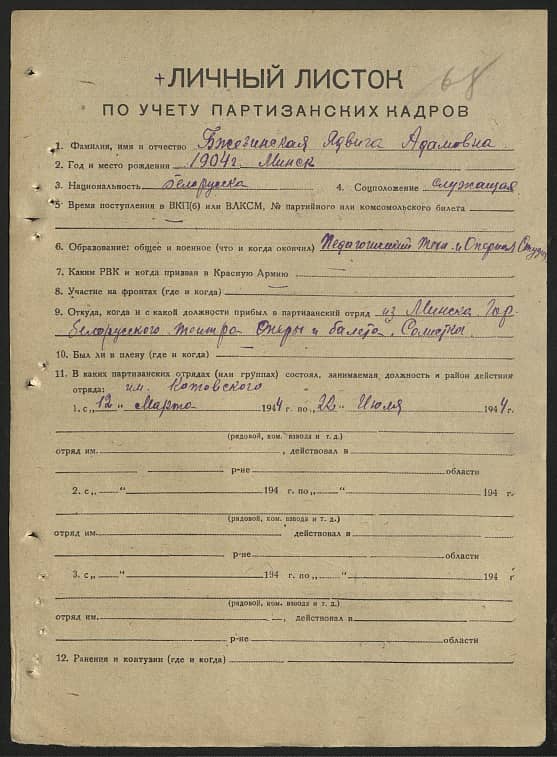 68
+ЛИЧНЫЙ ЛИСТОК
ПО УЧЕТУ ПАРТИЗАНСКИХ КАДРОВ
1. Фамилия, имя и отчество Бжезинская Ядвига Адамовна.
2. Год и место рождения 1904 г. Минск
3. Национальность белорусска 4. Соцположение служащая
5 Время поступления в ВКП(б) или ВЛКСМ, № партийного или комсомольского билета
—
6. Образование: общее и военное (что и когда окончил) Педагогический техн. и Оперная Студия
7. Каким РВК и когда призван в Красную Армию —
8. Участие на фронтах (где и когда)
9. Откуда, когда и с какой должности прибыл в партизанский отряд из Минска Гос.
белорусского театра Оперы и балета, Солистка
10. Был ли в плену (где и когда) —
11. В каких партизанских отрядах (или группах) состоял, занимаемая должность и район действия
отряда: им. Котовского
1. с „12" Марта 1944 г. по „22" Июля 1944 г.
(рядовой, ком. взвода и т. д.)
отряд им. , действовал в
р-не области
2. с „ — " 194 г. по „ — " 194 г.
(рядовой, ком. взвода и т. д.)
отряд им. действовал в
р-не области
3. с „ — " 194 г. по „ — " 194 г
(рядовой, ком. взвода и т. д.)
отряд им. , действовал в
р-не области
12. Ранения и контузии (где и когда)